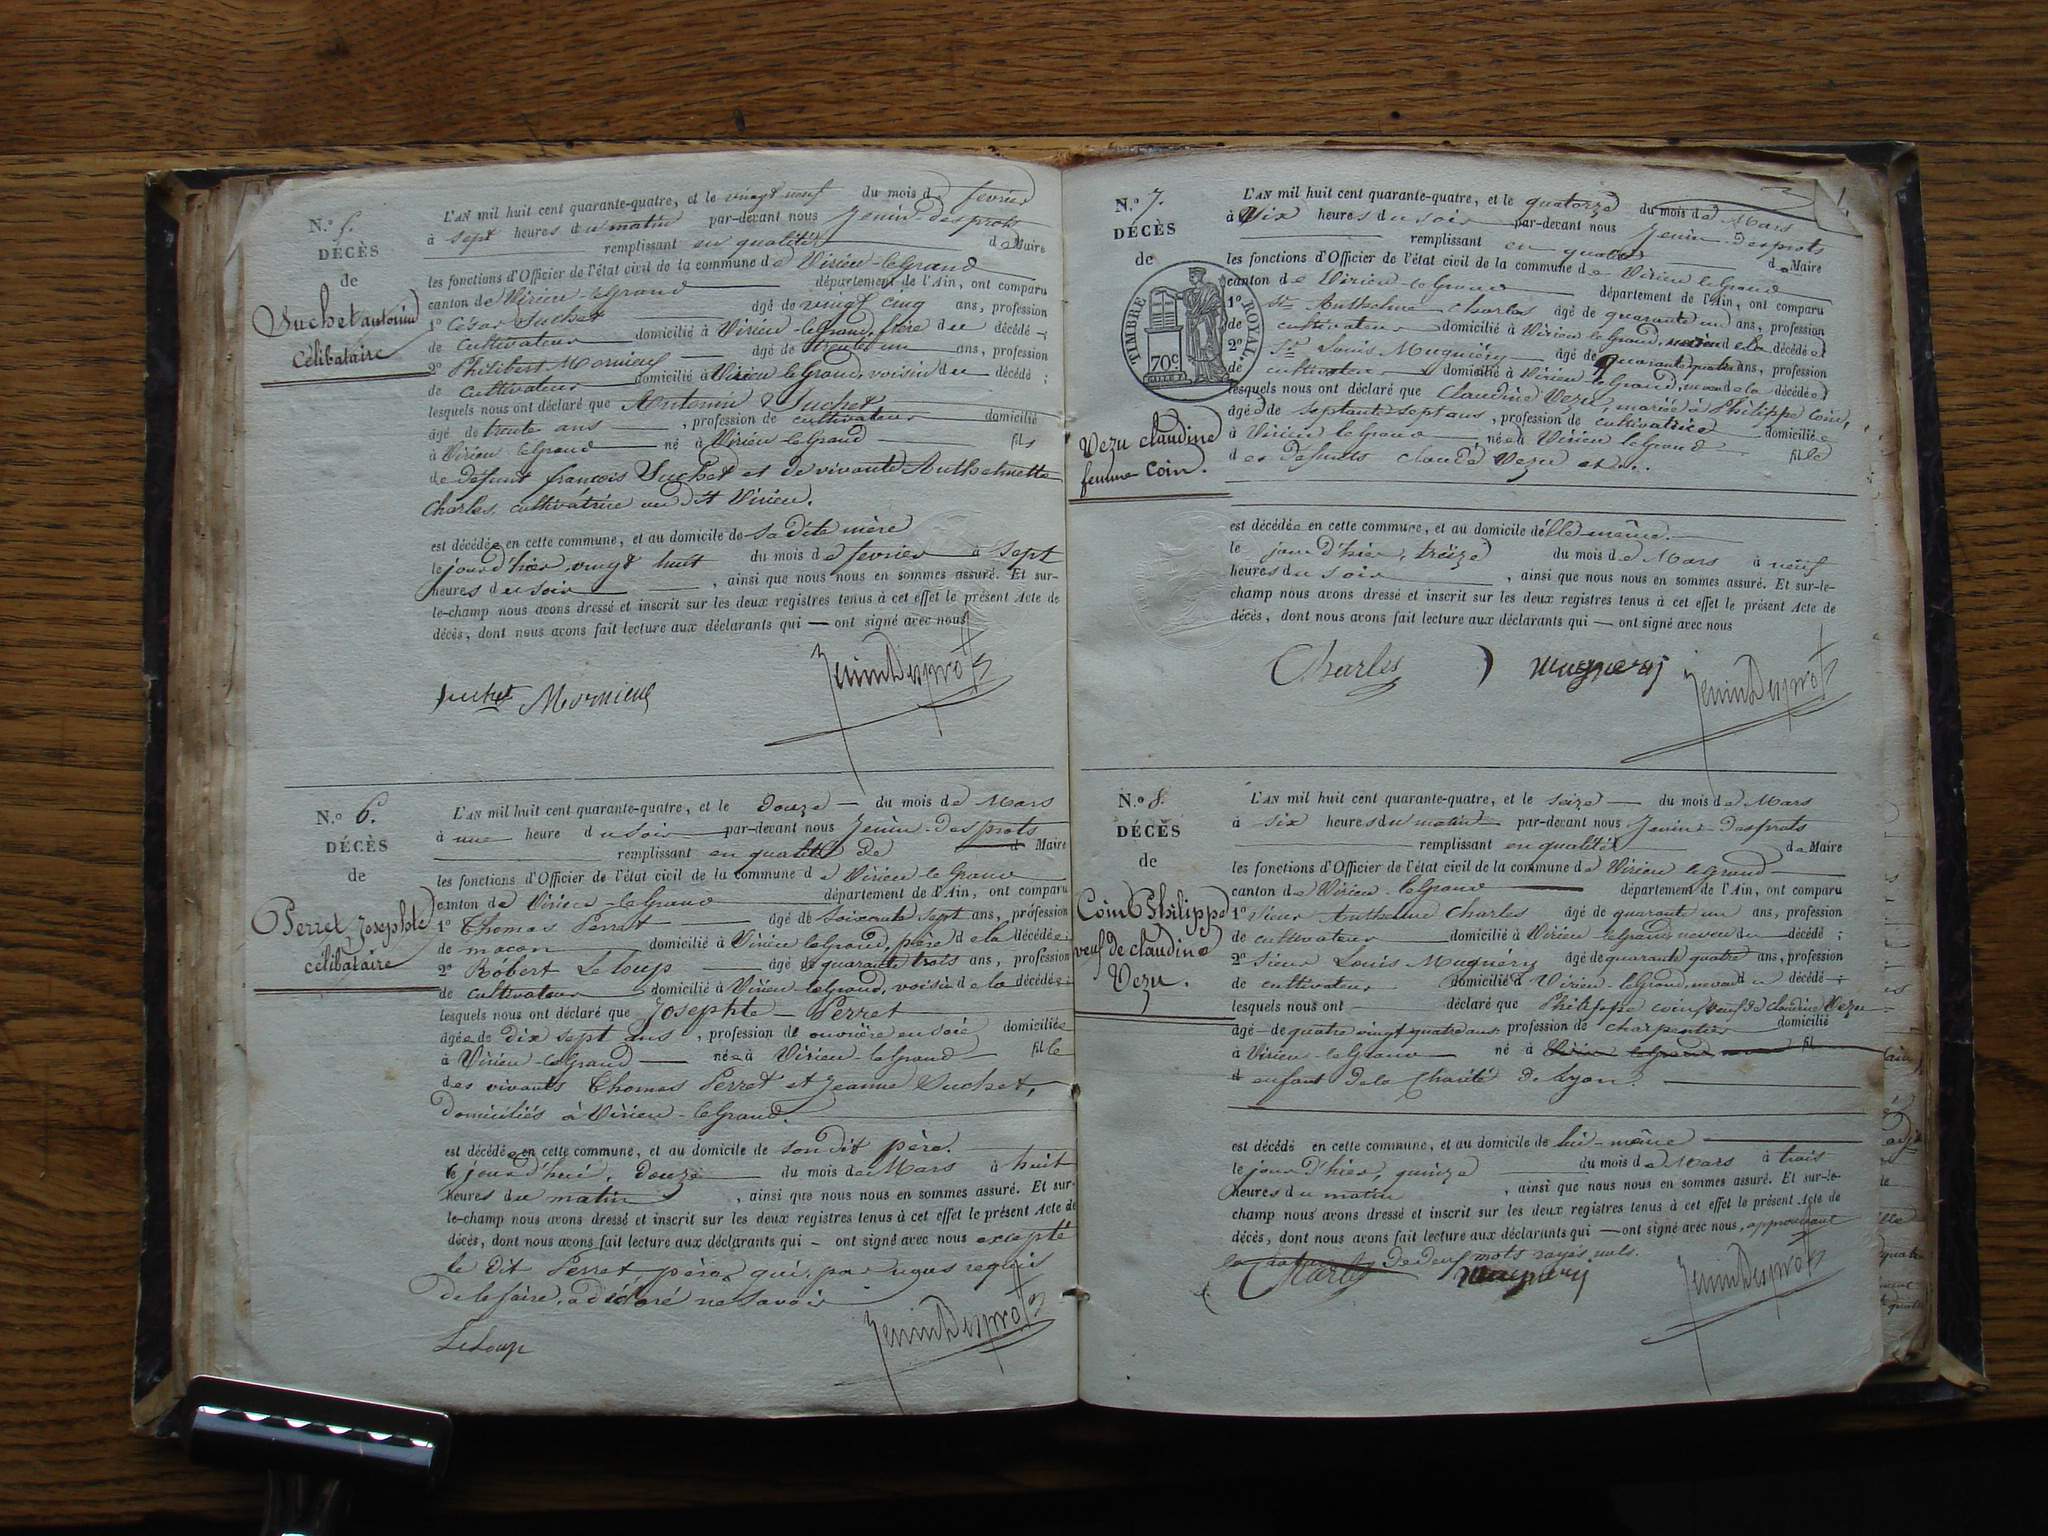 N.o 5.
DÉCÈS
de
Suchet antonin
célibataire
L'AN mil huit cent quarante-quatre, et le vingt neuf du mois de fevrier
à sept heures du matin par-devant nous Jenin-desprots
remplissant en qualité de Maire
les fonctions d'Officier de l'état civil de la commune de Virieu-le Grand
canton de Virieu-le Grand département de l'Ain, ont comparu
1o César Suchet âgé de vingt cinq ans, profession
de cultivateur domicilié à Virieu-le Grand, frère du décédé ;
2o Philibert Mornieux âgé de trente un ans, profession
de cultivateur domicilié à Virieu le Grand, voisin du décédé ;
lesquels nous ont déclaré que Antonin Suchet
âgé de trente ans, profession de cultivateur domicilié
à Virieu le Grand né à Virieu le Grand fils
de défunt françois Suchet et de vivante Anthelmette
Charles, cultivatrice au dit Virieu.
est décédé en cette commune, et au domicile de sa dite mère
le jour d'hier, vingt huit du mois de fevrier à sept
heures du soir, ainsi que nous nous en sommes assuré. Et sur-
le-champ nous avons dressé et inscrit sur les deux registres tenus à cet effet le présent Acte de
décès, dont nous avons fait lecture aux déclarants qui — ont signé avec nous
Suchet Mornieux JeninDesprots
N.o 6.
DÉCÈS
de
Perret Josephte
célibataire
L'AN mil huit cent quarante-quatre, et le douze — du mois de Mars
à une heure du soir par-devant nous Jenin-desprots
remplissant en qualité de d Maire
les fonctions d'Officier de l'état civil de la commune de Virieu le Grand
canton de Virieu-le Grand département de l'Ain, ont comparu
1o Thomas Perret âgé de soixante sept ans, profession
de maçon domicilié à Virieu le Grand, père de la décédée ;
2o Robert Leloup âgé de quarante trois ans, profession
de cultivateur domicilié à Virieu-le Grand, voisin de la décédée ;
lesquels nous ont déclaré que Josephte Perret
âgée de dix sept ans, profession de ouvrière en soie domiciliée
à Virieu-le Grand née à Virieu-le Grand fille
des vivants Thomas Perret et Jeanne Suchet,
domiciliés à Virieu-le Grand.
est décédée en cette commune, et au domicile de son dit père.
le jour d'hui, douze du mois de Mars à huit
heures du matin, ainsi que nous nous en sommes assuré. Et sur-
le-champ nous avons dressé et inscrit sur les deux registres tenus à cet effet le présent Acte de
décès, dont nous avons fait lecture aux déclarants qui — ont signé avec nous excepté
le dit Perret père qui, par nous requis
de le faire, a déclaré ne savoir
Leloup JeninDesprots
N.o 7.
DÉCÈS
de
TIMBRE ROYAL
70c
Vezu claudine
femme Coin.
L'AN mil huit cent quarante-quatre, et le quatorze du mois de Mars
à dix heures du soir par-devant nous Jenin-desprots
remplissant en qualité de Maire
les fonctions d'Officier de l'état civil de la commune de Virieu le Grand
canton de Virieu-le Grand département de l'Ain, ont comparu
1o Sr. Anthelme Charles âgé de quarante un ans, profession
de cultivateur domicilié à Virieu le Grand, neveu de la décédée ;
2o Sr. Louis Mugniéry âgé de quarante quatre ans, profession
de cultivateur domicilié à Virieu-le Grand, neveu de la décédée ;
lesquels nous ont déclaré que Claudine Vezu, mariée à Philippe Coin,
âgée de septante sept ans, profession de cultivatrice domiciliée
à Virieu le Grand née à Virieu le Grand fille
des défunts claude Vezu et
est décédée en cette commune, et au domicile d'elle même.
le jour d'hier, treize du mois de Mars à neuf
heures du soir, ainsi que nous nous en sommes assuré. Et sur-le-
champ nous avons dressé et inscrit sur les deux registres tenus à cet effet le présent Acte de
décès, dont nous avons fait lecture aux déclarants qui — ont signé avec nous
Charles Mugniery JeninDesprots
N.o 8.
DÉCÈS
de
Coin Philippe
veuf de claudine
Vezu.
L'AN mil huit cent quarante-quatre, et le seize — du mois de Mars
à six heures du matin par-devant nous Jenin-desprots
remplissant en qualité de Maire
les fonctions d'Officier de l'état civil de la commune de Virieu le Grand
canton de Virieu-le Grand département de l'Ain, ont comparu
1o Sieur Anthelme Charles âgé de quarante un ans, profession
de cultivateur domicilié à Virieu le Grand neveu du décédé ;
2o Sieur Louis Mugniéry âgé de quarante quatre ans, profession
de cultivateur domicilié à Virieu-le Grand, neveu du décédé ;
lesquels nous ont déclaré que Philippe coin, veuf de claudine Vezu
âgé de quatre vingt quatre ans profession de charpentier domicilié
à Virieu-le Grand né à Virieu le Grand fil
d enfant de la Charité de Lyon.
est décédé en cette commune, et au domicile de lui-même
le jour d'hier, quinze du mois de Mars à trois
heures du matin, ainsi que nous nous en sommes assuré. Et sur-le-
champ nous avons dressé et inscrit sur les deux registres tenus à cet effet le présent Acte de
décès, dont nous avons fait lecture aux déclarants qui — ont signé avec nous, approuvant
la rature de deux mots rayés nuls.
Charles Mugniery JeninDesprots